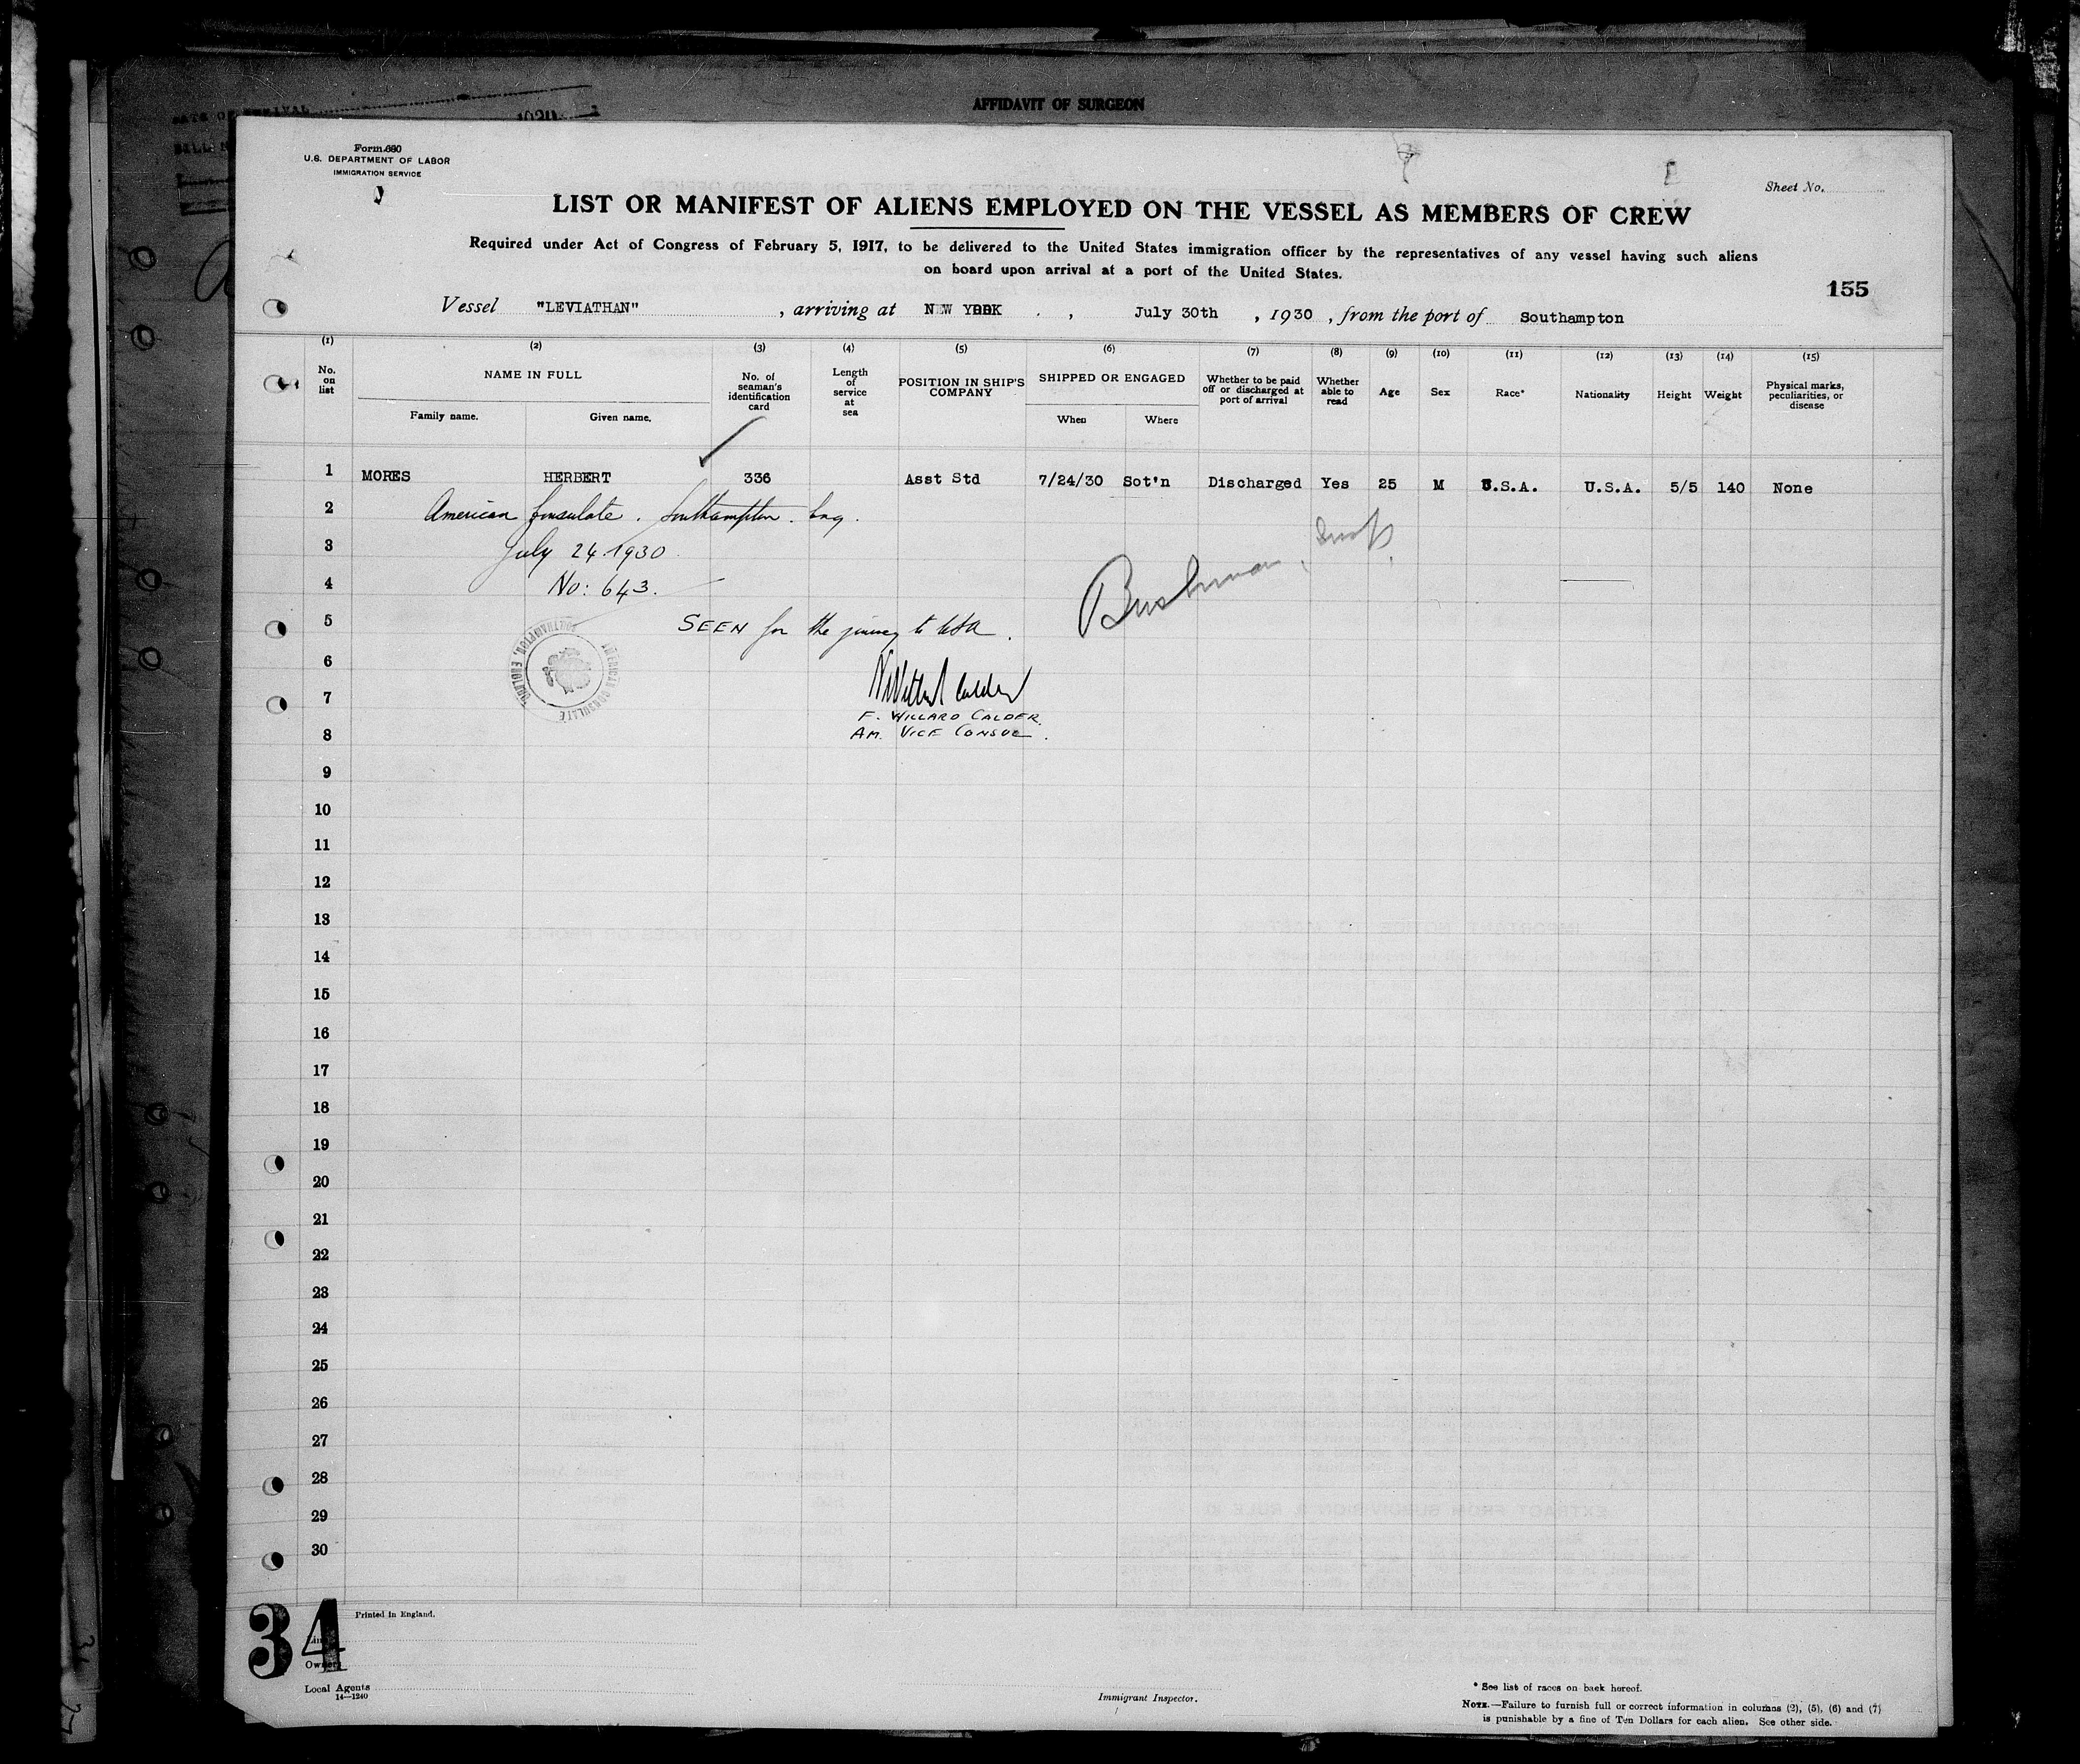 AFFIDAVIT OF SURGEON
Form 680
U.S. DEPARTMENT OF LABOR
IMMIGRATION SERVICE
Sheet No.
LIST OR MANIFEST OF ALIENS EMPLOYED ON THE VESSEL AS MEMBERS OF CREW
Required under Act of Congress of February 5, 1917, to be delivered to the United States immigration officer by the representatives of any vessel having such aliens
on board upon arrival at a port of the United States.
155
Vessel "LEVIATHAN" , arriving at NEW YORK , July 30th , 1930 , from the port of Southampton
(1) (2) (3) (4) (5) (6) (7) (8) (9) (10) (11) (12) (13) (14) (15)
No. on list NAME IN FULL Family name. Given name. No. of seaman's identification card Length of service at sea POSITION IN SHIP'S COMPANY SHIPPED OR ENGAGED When Where Whether to be paid off or discharged at port of arrival Whether able to read Age Sex Race* Nationality Height Weight Physical marks, peculiarities, or disease
1 MORES HERBERT 336 Asst Std 7/24/30 Sot'n Discharged Yes 25 M U.S.A. U.S.A. 5/5 140 None
2 American Consulate. Southampton. Eng.
3 July 24. 1930
4 No: 643.
Bushman,
5 SEEN for the journey to USA.
AMERICAN CONSULATE
SOUTHAMPTON, ENGLAND
6
7 F. WILLARD CALDER.
8 AM. VICE CONSUL.
9
10
11
12
13
14
15
16
17
18
19
20
21
22
23
24
25
26
27
28
29
30
34
Printed in England.
Line
Owners
Local Agents
14—1240
Immigrant Inspector.
* See list of races on back hereof.
NOTE.—Failure to furnish full or correct information in columns (2), (5), (6) and (7)
is punishable by a fine of Ten Dollars for each alien. See other side.